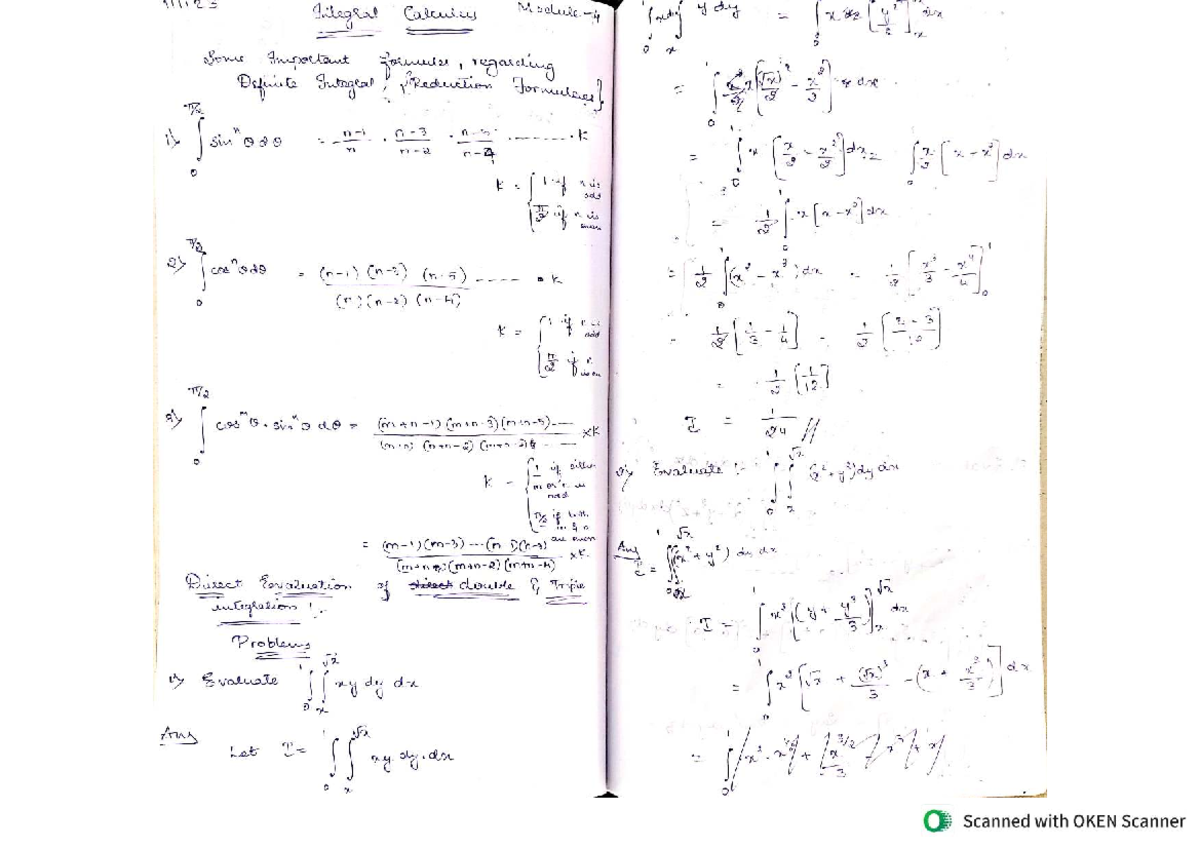 Integral Calculus Module-4
Some Important formulae, regarding
Definite Integral, {Reduction Formulaes}
1) ∫₀^{π/2} sinⁿθ dθ = n-1/n · n-3/n-2 · n-5/n-4 ........ · K
K = { 1 if n is odd
π/2 if n is even
2) ∫₀^{π/2} cosⁿθ dθ = (n-1) (n-3) (n-5) ...... · K
(n) (n-2) (n-4)
K = { 1 if n is odd
π/2 if n is even
3) ∫₀^{π/2} cosᵐθ · sinⁿθ dθ = (m+n-1)(m+n-3)(m+n-5)... ×K
(m+n) (m+n-2)
K = { 1 if either m or n is odd
π/2 if both m & n are even
= (m-1)(m-3)...(n-1)(n-3) ×K
(m+n)(m+n-2)(m+n-4)
Direct Eevaluation of direct double & Triple
integration :-
Problems
1) Evaluate ∫₀¹ ∫ₓ^{√x} xy dy dx
Ans
Let I = ∫₀¹ ∫ₓ^{√x} xy dy·dx
y dy = ∫₀ x [y²/2]ₓ dx
= ∫₀¹ x [(√x)²/2 - x²/2] dx
= ∫₀¹ x [x/2 - x²/2] dx = ∫₀¹ x/2 [x - x²] dx
= 1/2 ∫₀¹ x [x - x²] dx
= 1/2 ∫₀¹ (x² - x³) dx = 1/2 [x³/3 - x⁴/4]₀¹
= 1/2 [1/3 - 1/4] = 1/2
= 1/2 [1/12]
I = 1/24 //
Evaluate :- ∫₀¹ ∫ₓ^{√x} (x²+y²) dy dx
Ans
I = ∫₀¹ ∫ₓ^{√x} (x² + y²) dy dx
I = ∫₀¹ x² [(y + y³/3]ₓ^{√x} dx
= ∫₀¹ x² [√x + (√x)³/3 - (x + x³/3)] dx
Scanned with OKEN Scanner